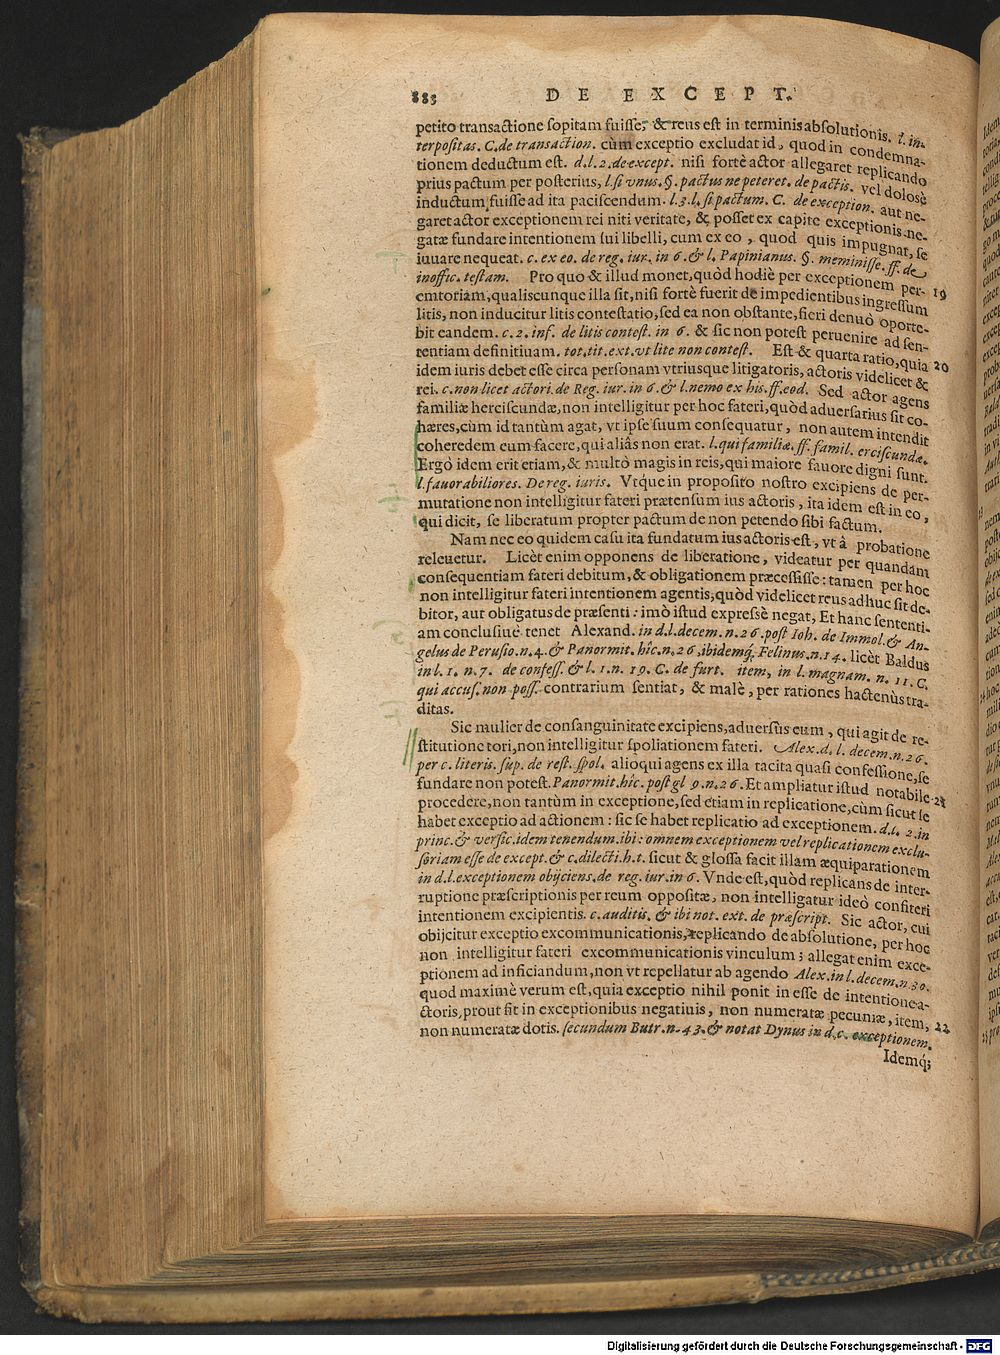 883 DE EXCEPT.
petito transactione sopitam fuisse, & reus est in terminis absolutionis. l. in-
terpositas. C. de transaction. cùm exceptio excludat id, quod in condemna-
tionem deductum est. d. l. 2. de except. nisi fortè actor allegaret replicando
prius pactum per posterius, l. si vnus. §. pactus ne peteret. de pactis. vel dolosè
inductum fuisse ad ita paciscendum. l. 3. l. si pactum. C. de exception. aut ne-
garet actor exceptionem rei niti veritate, & posset ex capite exceptionis ne-
gatæ fundare intentionem sui libelli, cum ex eo, quod quis impugnat, se
iuuare nequeat. c. ex eo. de reg. iur. in 6. & l. Papinianus. §. meminisse. ff. de
inoffic. testam. Pro quo & illud monet, quòd hodiè per exceptionem per- 19
emtoriam, qualiscunque illa sit, nisi fortè fuerit de impedientibus ingressum
litis, non inducitur litis contestatio, sed ea non obstante, fieri denuò oporte-
bit eandem. c. 2. inf. de litis contest. in 6. & sic non potest peruenire ad sen-
tentiam definitiuam. tot. tit. ext. vt lite non contest. Est & quarta ratio, quia 20
idem iuris debet esse circa personam vtriusque litigatoris, actoris videlicet &
rei. c. non licet actori. de Reg. iur. in 6. & l. nemo ex his. ff. eod. Sed actor agens
familiæ herciscundæ, non intelligitur per hoc fateri, quòd aduersarius sit co-
hæres, cùm id tantùm agat, vt ipse suum consequatur, non autem intendit
coheredem eum facere, qui aliâs non erat. l. qui familiæ. ff. famil. erciscundæ.
Ergò idem erit etiam, & multò magis in reis, qui maiore fauore digni sunt.
l. fauorabiliores. De reg. iuris. Vtque in proposito nostro excipiens de per-
mutatione non intelligitur fateri prætensum ius actoris, ita idem est in eo,
qui dicit, se liberatum propter pactum de non petendo sibi factum.
Nam nec eo quidem casu ita fundatum ius actoris est, vt â probatione
releuetur. Licèt enim opponens de liberatione, videatur per quandam
consequentiam fateri debitum, & obligationem præcessisse: tamen per hoc
non intelligitur fateri intentionem agentis, quòd videlicet reus adhuc sit de-
bitor, aut obligatus de præsenti: imò istud expressè negat, Et hanc sententi-
am conclusiuè tenet Alexand. in d. l. decem. n. 26. post Ioh. de Immol. & An-
gelus de Perusio. n. 4. & Panormit. hîc. n. 26. ibidemq́. Felinus. n. 14. licèt Baldus
in l. 1. n. 7. de confess. & l. 1. n. 19. C. de furt. item, in l. magnam. n. 11. C.
qui accus. non poss. contrarium sentiat, & malè, per rationes hactenùs tra-
ditas.
Sic mulier de consanguinitate excipiens, aduersùs eum, qui agit de re-
stitutione tori, non intelligitur spoliationem fateri. Alex. d. l. decem. n. 26.
per c. literis. sup. de rest. spol. alioqui agens ex illa tacita quasi confessione, se
fundare non potest. Panormit. hîc. post gl 9. n. 26. Et ampliatur istud notabile 21
procedere, non tantùm in exceptione, sed etiam in replicatione, cùm sicut se
habet exceptio ad actionem: sic se habet replicatio ad exceptionem. d. l. 2. in
princ. & versic. idem tenendum. ibi: omnem exceptionem vel replicationem exclu-
soriam esse de except. & c. dilecti. h. t. sicut & glossa facit illam æquiparationem
in d. l. exceptionem obijciens. de reg. iur. in 6. Vnde est, quòd replicans de inter-
ruptione præscriptionis per reum oppositæ, non intelligatur ideò confiteri
intentionem excipientis. c. auditis. & ibi not. ext. de præscript. Sic actor, cui
obijcitur exceptio excommunicationis, replicando de absolutione, per hoc
non intelligitur fateri excommunicationis vinculum; allegat enim exce-
ptionem ad inficiandum, non vt repellatur ab agendo Alex. in l. decem. n. 30.
quod maximè verum est, quia exceptio nihil ponit in esse de intentione a-
ctoris, prout fit in exceptionibus negatiuis, non numeratæ pecuniæ, item, 22
non numeratæ dotis. secundum Butr. n. 43. & notat Dynus in d. c. exceptionem.
Idemq́;
Digitalisierung gefördert durch die Deutsche Forschungsgemeinschaft - DFG